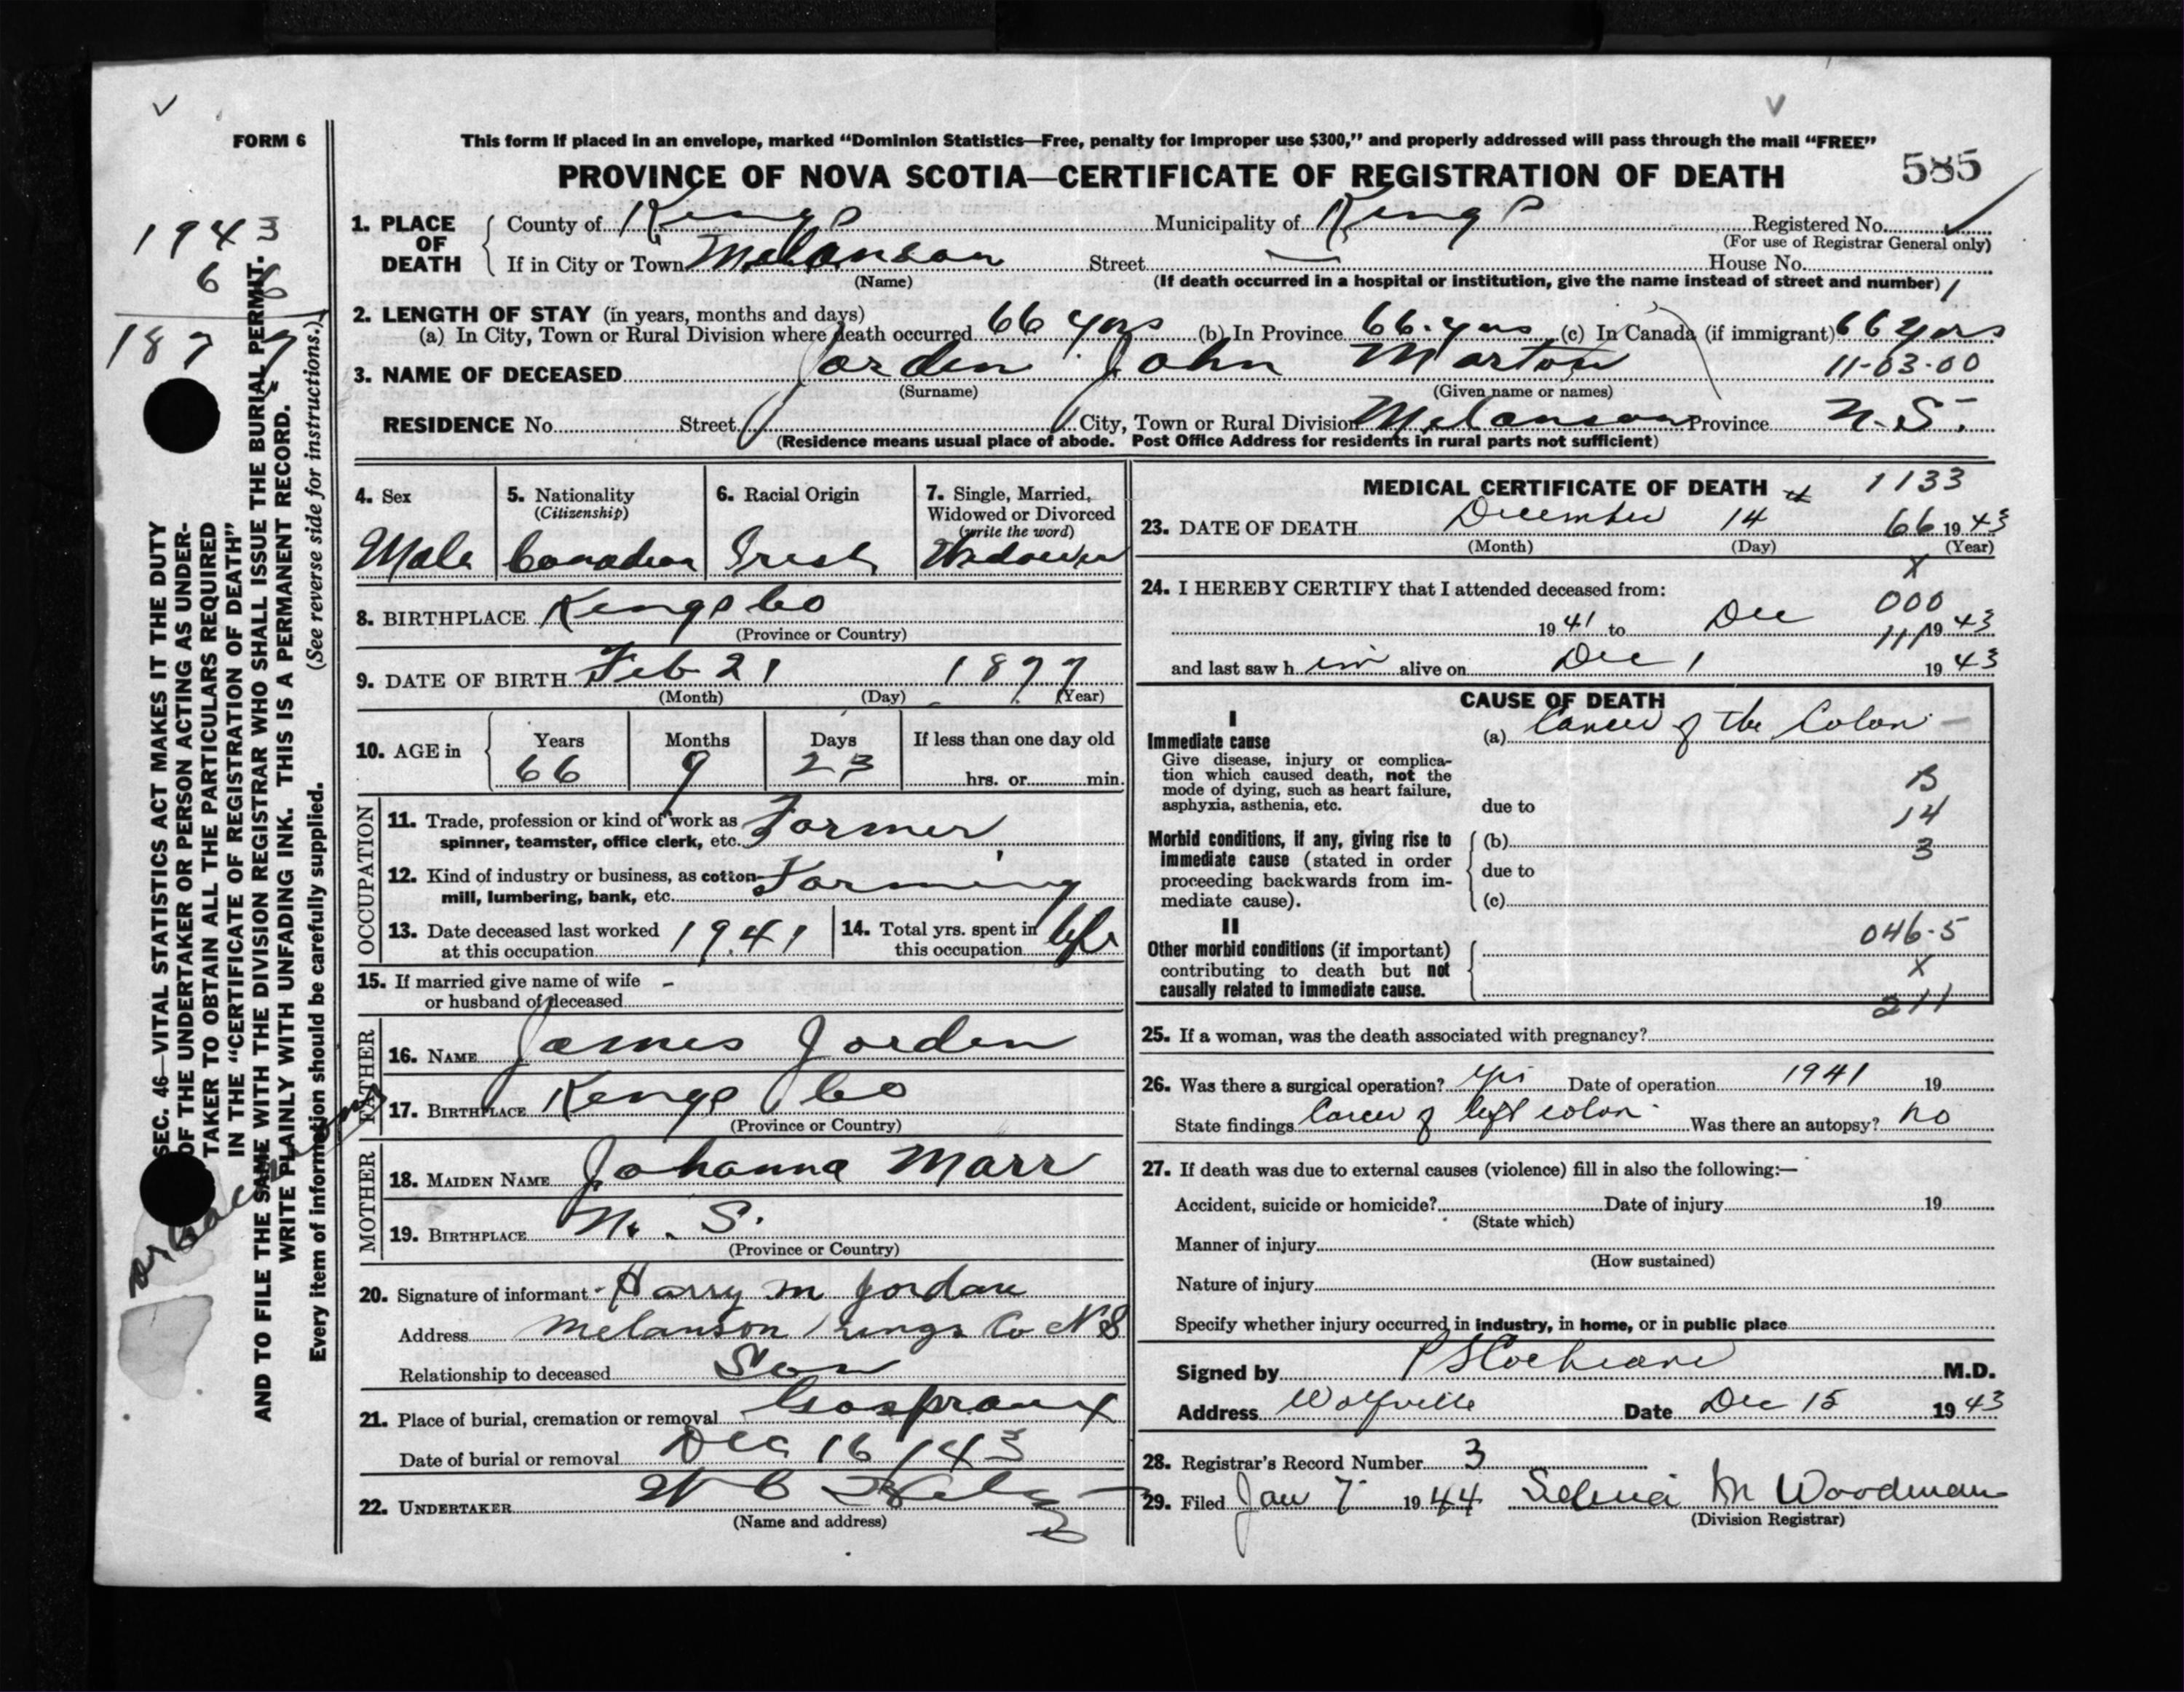 FORM 6
This form if placed in an envelope, marked “Dominion Statistics—Free, penalty for improper use $300,” and properly addressed will pass through the mail “FREE”
PROVINCE OF NOVA SCOTIA—CERTIFICATE OF REGISTRATION OF DEATH
585
1943
66
1877
SEC. 46—VITAL STATISTICS ACT MAKES IT THE DUTY
OF THE UNDERTAKER OR PERSON ACTING AS UNDER-
TAKER TO OBTAIN ALL THE PARTICULARS REQUIRED
IN THE “CERTIFICATE OF REGISTRATION OF DEATH”
AND TO FILE THE SAME WITH THE DIVISION REGISTRAR WHO SHALL ISSUE THE BURIAL PERMIT.
WRITE PLAINLY WITH UNFADING INK. THIS IS A PERMANENT RECORD.
Every item of information should be carefully supplied. (See reverse side for instructions.)
1. PLACE OF DEATH
County of Kings Municipality of Kings Registered No.
(For use of Registrar General only)
If in City or Town Melanson Street — House No.
(Name) (If death occurred in a hospital or institution, give the name instead of street and number) 1
2. LENGTH OF STAY (in years, months and days)
(a) In City, Town or Rural Division where death occurred 66 yrs (b) In Province 66 yrs (c) In Canada (if immigrant) 66 yrs
3. NAME OF DECEASED Jorden John Marton 11-03-00
(Surname) (Given name or names)
RESIDENCE No. Street City, Town or Rural Division Melanson Province N.S.
(Residence means usual place of abode. Post Office Address for residents in rural parts not sufficient)
4. Sex 5. Nationality (Citizenship) 6. Racial Origin 7. Single, Married, Widowed or Divorced (write the word)
Male Canadian Irish Widower
8. BIRTHPLACE Kings Co
(Province or Country)
9. DATE OF BIRTH Feb 21 1877
(Month) (Day) (Year)
10. AGE in Years Months Days If less than one day old
66 9 23 hrs. or min.
OCCUPATION
11. Trade, profession or kind of work as
spinner, teamster, office clerk, etc. Farmer
12. Kind of industry or business, as cotton
mill, lumbering, bank, etc. Farming
13. Date deceased last worked
at this occupation 1941
14. Total yrs. spent in
this occupation life
15. If married give name of wife -
or husband of deceased
FATHER
16. NAME James Jorden
17. BIRTHPLACE Kings Co
(Province or Country)
MOTHER
18. MAIDEN NAME Johanna Marr
19. BIRTHPLACE N. S.
(Province or Country)
20. Signature of informant Harry M Jordan
Address Melanson Kings Co N S
Relationship to deceased Son
21. Place of burial, cremation or removal Gaspraux
Date of burial or removal Dec 16 / 43
22. UNDERTAKER W C
(Name and address)
MEDICAL CERTIFICATE OF DEATH 1133
23. DATE OF DEATH December 14th 66 1943
(Month) (Day) (Year)
X
24. I HEREBY CERTIFY that I attended deceased from:
000
1941 to Dec 1943
111
and last saw him alive on Dec 1 1943
CAUSE OF DEATH
I
Immediate cause
Give disease, injury or complica-
tion which caused death, not the
mode of dying, such as heart failure,
asphyxia, asthenia, etc.
(a) Cancer of the Colon
due to
B
14
3
Morbid conditions, if any, giving rise to
immediate cause (stated in order
proceeding backwards from im-
mediate cause).
(b)
due to
(c)
II
Other morbid conditions (if important)
contributing to death but not
causally related to immediate cause.
046-5
X
211
25. If a woman, was the death associated with pregnancy?
26. Was there a surgical operation? yes Date of operation 1941 19
State findings Cancer of left colon Was there an autopsy? no
27. If death was due to external causes (violence) fill in also the following:—
Accident, suicide or homicide? Date of injury 19
(State which)
Manner of injury
(How sustained)
Nature of injury
Specify whether injury occurred in industry, in home, or in public place
Signed by P S Cochrane M.D.
Address Wolfville Date Dec 15 1943
28. Registrar's Record Number 3
29. Filed Jan 7 1944 Selma M Woodman
(Division Registrar)